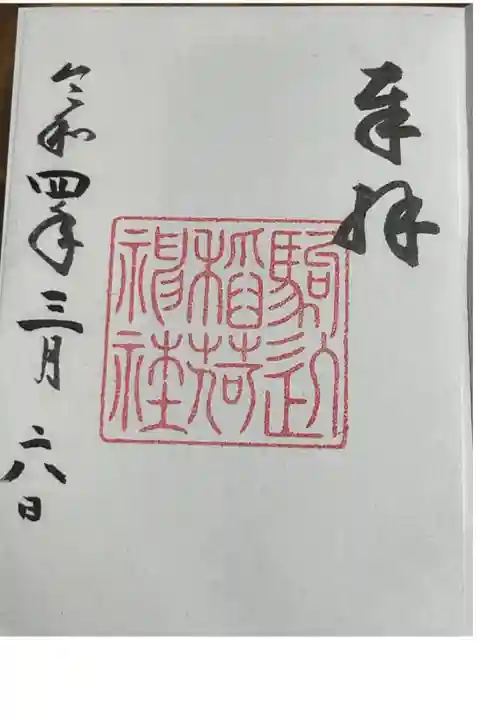 奉拝
駒込
稲荷
神社
令和四年三月六日